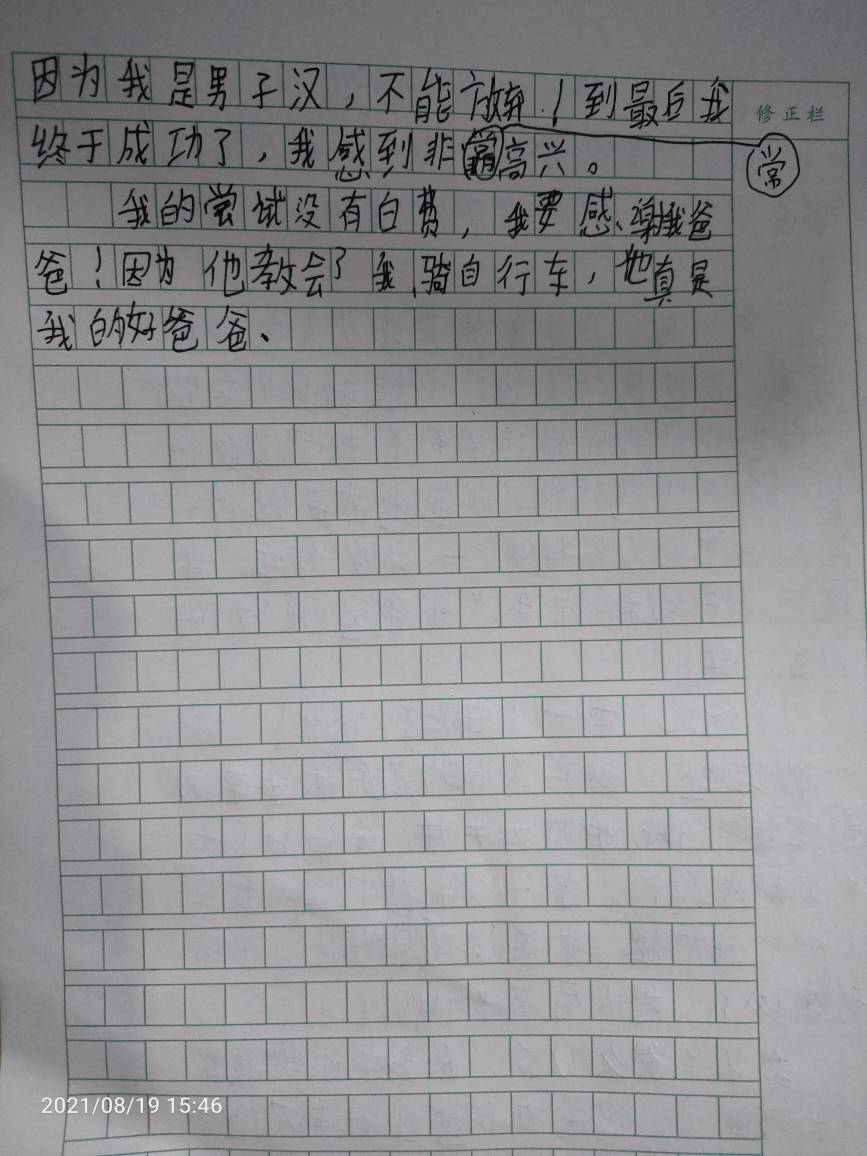 因为我是男子汉，不能放弃！到最后我
修正栏
终于成功了，我感到非常高兴。
常
我的尝试没有白费，我要感谢我爸
爸！因为他教会了我骑自行车，他真是
我的好爸爸、
2021/08/19 15:46